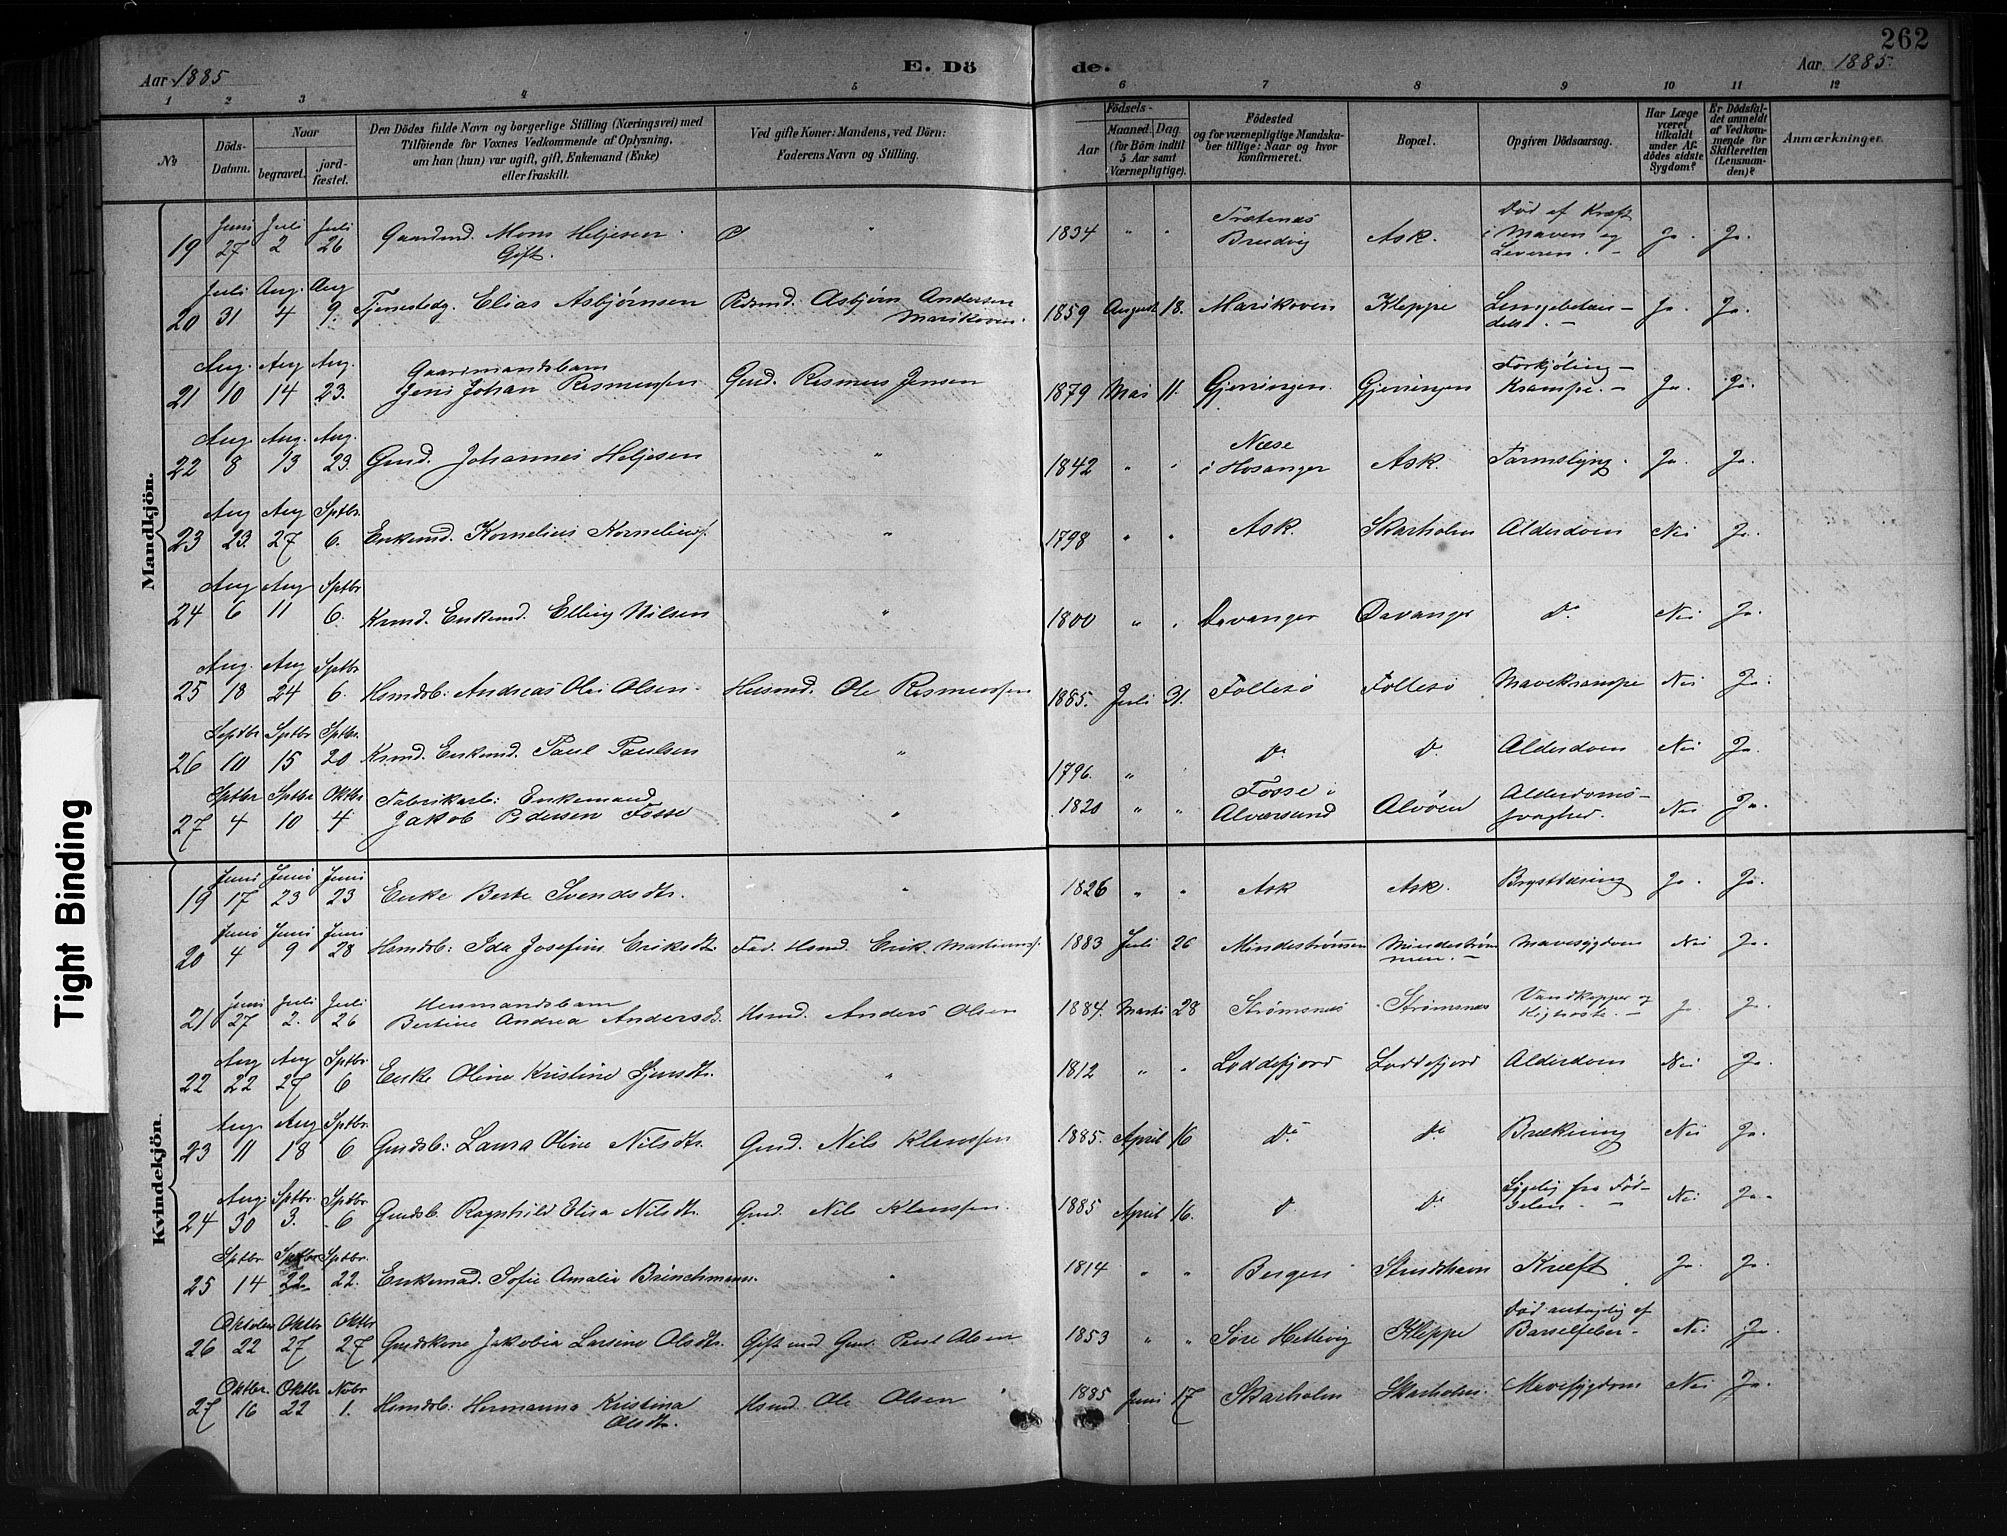 262
Aar 1885
E. Döde.
Aar 1885.
1 2 3 4 5 6 7 8 9 10 11 12
No
Döds-Datum.
Naar
begravet.
jord-fæstet.
Den Dödes fulde Navn og borgerlige Stilling (Næringsvei) med
Tilföiende for Voxnes Vedkommende af Oplysning,
om han (hun) var ugift, gift, Enkemand (Enke)
eller fraskilt.
Ved gifte Koner: Mandens, ved Dörn:
Faderens Navn og Stilling.
Födsels-
Aar
Maaned. Dag.
(for Börn indtil
5 Aar samt
Værnepligtige).
Födested
og for værnepligtige Mandska-
ber tillige: Naar og hvor
konfirmeret.
Bopæl.
Opgiven Dödsaarsag.
Har Læge
været
tilkaldt
under Af-
dödes sidste
Sygdom?
Er Dödsfal-
det anmeldt
af Vedkom-
mende for
Skifteretten
(Lensman-
den)?
Anmærkninger.
Mandkjön.
19 Juni 27 Juli 2 Juli 26 Gaardmd. Mons Heljesen Gift. " 1834 " " Brudvig Ask. Død af Kræft i Maven og Leveren. Ja. Ja.
20 Juli 31 Aug. 4 Aug 9. Tjenestedg. Elias Asbjørnsen Asbjørn Andersen Marikoven. 1859 August 18. Marikoven Kleppe Ja. Ja.
21 Aug. 10 Aug 14 Aug. 23. Gaardmandsbarn Jens Johan Rasmussen Gmd. Rasmus Jensen 1879 Mai 11. Gjerningen Gjerningen Forkjøling - Krampe. - Ja. Ja.
22 Aug. 8 Aug. 13 Aug. 23. Gmd. Johannes Heljesen " 1842 " " Næse i Hosanger Ask. Tarmslyng. Ja. Ja.
23 Aug 23. Aug 27 Sptbr. 6. Enkemd. Kornelius Korneliuss. " 1798 " " Ask. Skarholm Alderdom Nei Ja.
24 Aug 6 Aug 11 Sptbr 6. Kmd. Enkemd. Elling Nilsen " 1800 " " Davanger Davanger Do Nei Ja.
25 Aug. 18 Aug 24 Sptbr 6. Hsmdsb. Andreas Olai Olsen Husmd. Ole Rasmussen 1885. Juli 31. Follesø Follesø Mavekrampe Nei Ja.
26 Septbr 10 Sptbr 15 Sptbr. 20 Kmd. Enkemd. Paul Paulsen " 1796. " " Do Do Alderdom Nei Ja.
27 Sptbr 4 Sptbr 10 Oktbr 4 Fabrikarb: Enkemand Jakob Pedersen Fosse " 1820 " " Fosse i Alværsund Alvøen Alderdoms- svaghed. Nei Ja.
Kvindekjön.
19 Juni 17 Juni 23 Juni 23 Enke Berte Svendsdtr. " 1826 " " Ask Ask. Brysttæring Ja. Ja.
20 Juni 4 Juni 9 Juni 28 Hsmdsb: Ida Josefine Eriksdtr. Fad. Hsmd. Erik Martinuss. 1883 Juli 26 Mindestrømmen Mindestrøm- men. - Mavesygdom Nei Ja.
21 Juni 27 Juli 2. Juli 26 Husmandsbarn Bertine Andrea Andersdtr. Hsmd. Anders Olsen 1884. Marts 28 Strømsnes Strømsnes Vandkopper og Kighoste. - Ja. Ja.
22 Aug 22 Aug 27 Sptbr 6 Enke Oline Kristine " 1812 " " Loddefjord Loddefjord Alderdom Nei Ja.
23 Aug. 11 Aug 18 Sptbr. 6 Gmdsb: Laura Oline Nilsdtr. Gmd. Nils Klaussen 1885. April 16 Do Do Brækning Nei Ja.
24 Aug. 30 Sptbr. 3. Sptbr 6 Gmdsb. Ragnhild Elisa Nilsdtr. Gmd. Nils Klaussen. 1885 April 16. Do Do Sygelig fra Fød- selen. - Nei Ja.
25 Sptbr 14 Sptbr 22 Sptbr. 22. Sofie Amalia Brinchmann. " 1814 " " Bergen Kræft Ja. Ja.
26 Oktober 22 Oktbr 27 Oktbr 27 Gmdskone Jakobia Larsine Olsdtr. Gift med Gmd. Paul Olsen 1853 " " Søre Hettevig Kleppe Død antagelig af Barselfeber - Nei Ja.
27 Oktbr. 16 Oktbr 22 Novbr 1. Hsmdsb: Hermanna Kristina Olsdtr. Hsmd. Ole Olsen 1885 Juni 17 Skarholm Skarholm. Mavesygdom Nei Ja.
Tight Binding